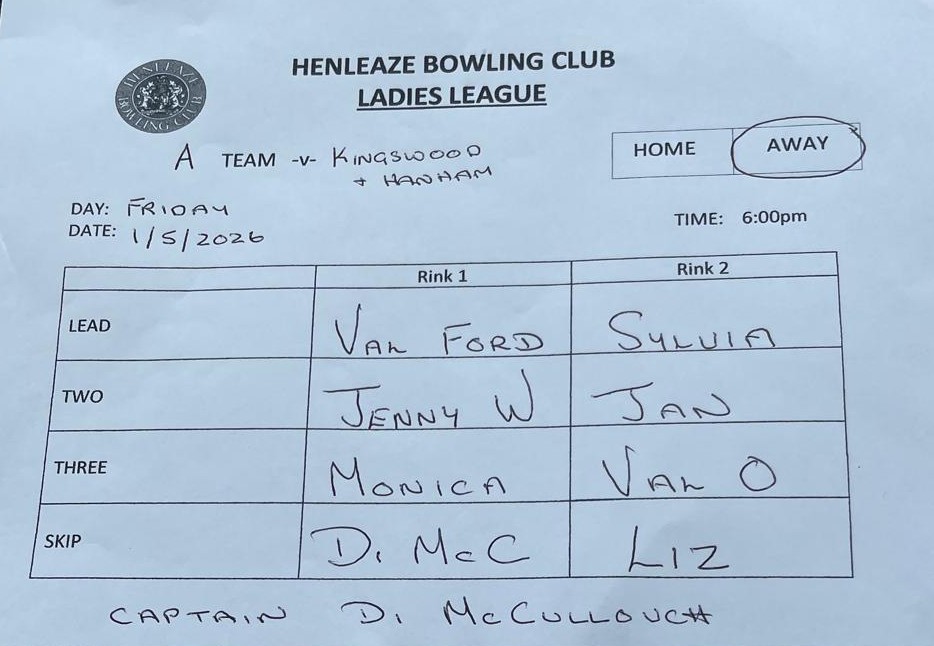 HENLEAZE BOWLING CLUB
LADIES LEAGUE
HENLEAZE BOWLING CLUB
A TEAM -v- KINGSWOOD
+ HANHAM
HOME AWAY
DAY: FRIDAY
DATE: 1/5/2026
TIME: 6:00pm
Rink 1 Rink 2
LEAD VAL FORD SYLVIA
TWO JENNY W JAN
THREE MONICA VAL O
SKIP DI McC LIZ
CAPTAIN DI McCULLOUGH